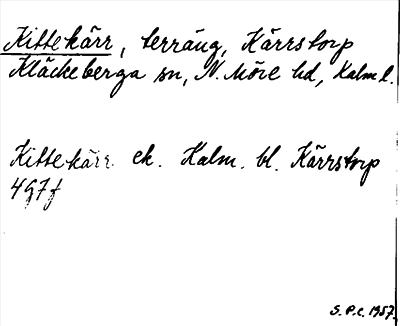 Kittekärr, terräng, Kärrstorp
Kläckeberga sn, N. Möre hd, Kalm l.
Kittekärr ek. Kalm. bl. Kärrstorp
4G7f
S.P.c. 1957.